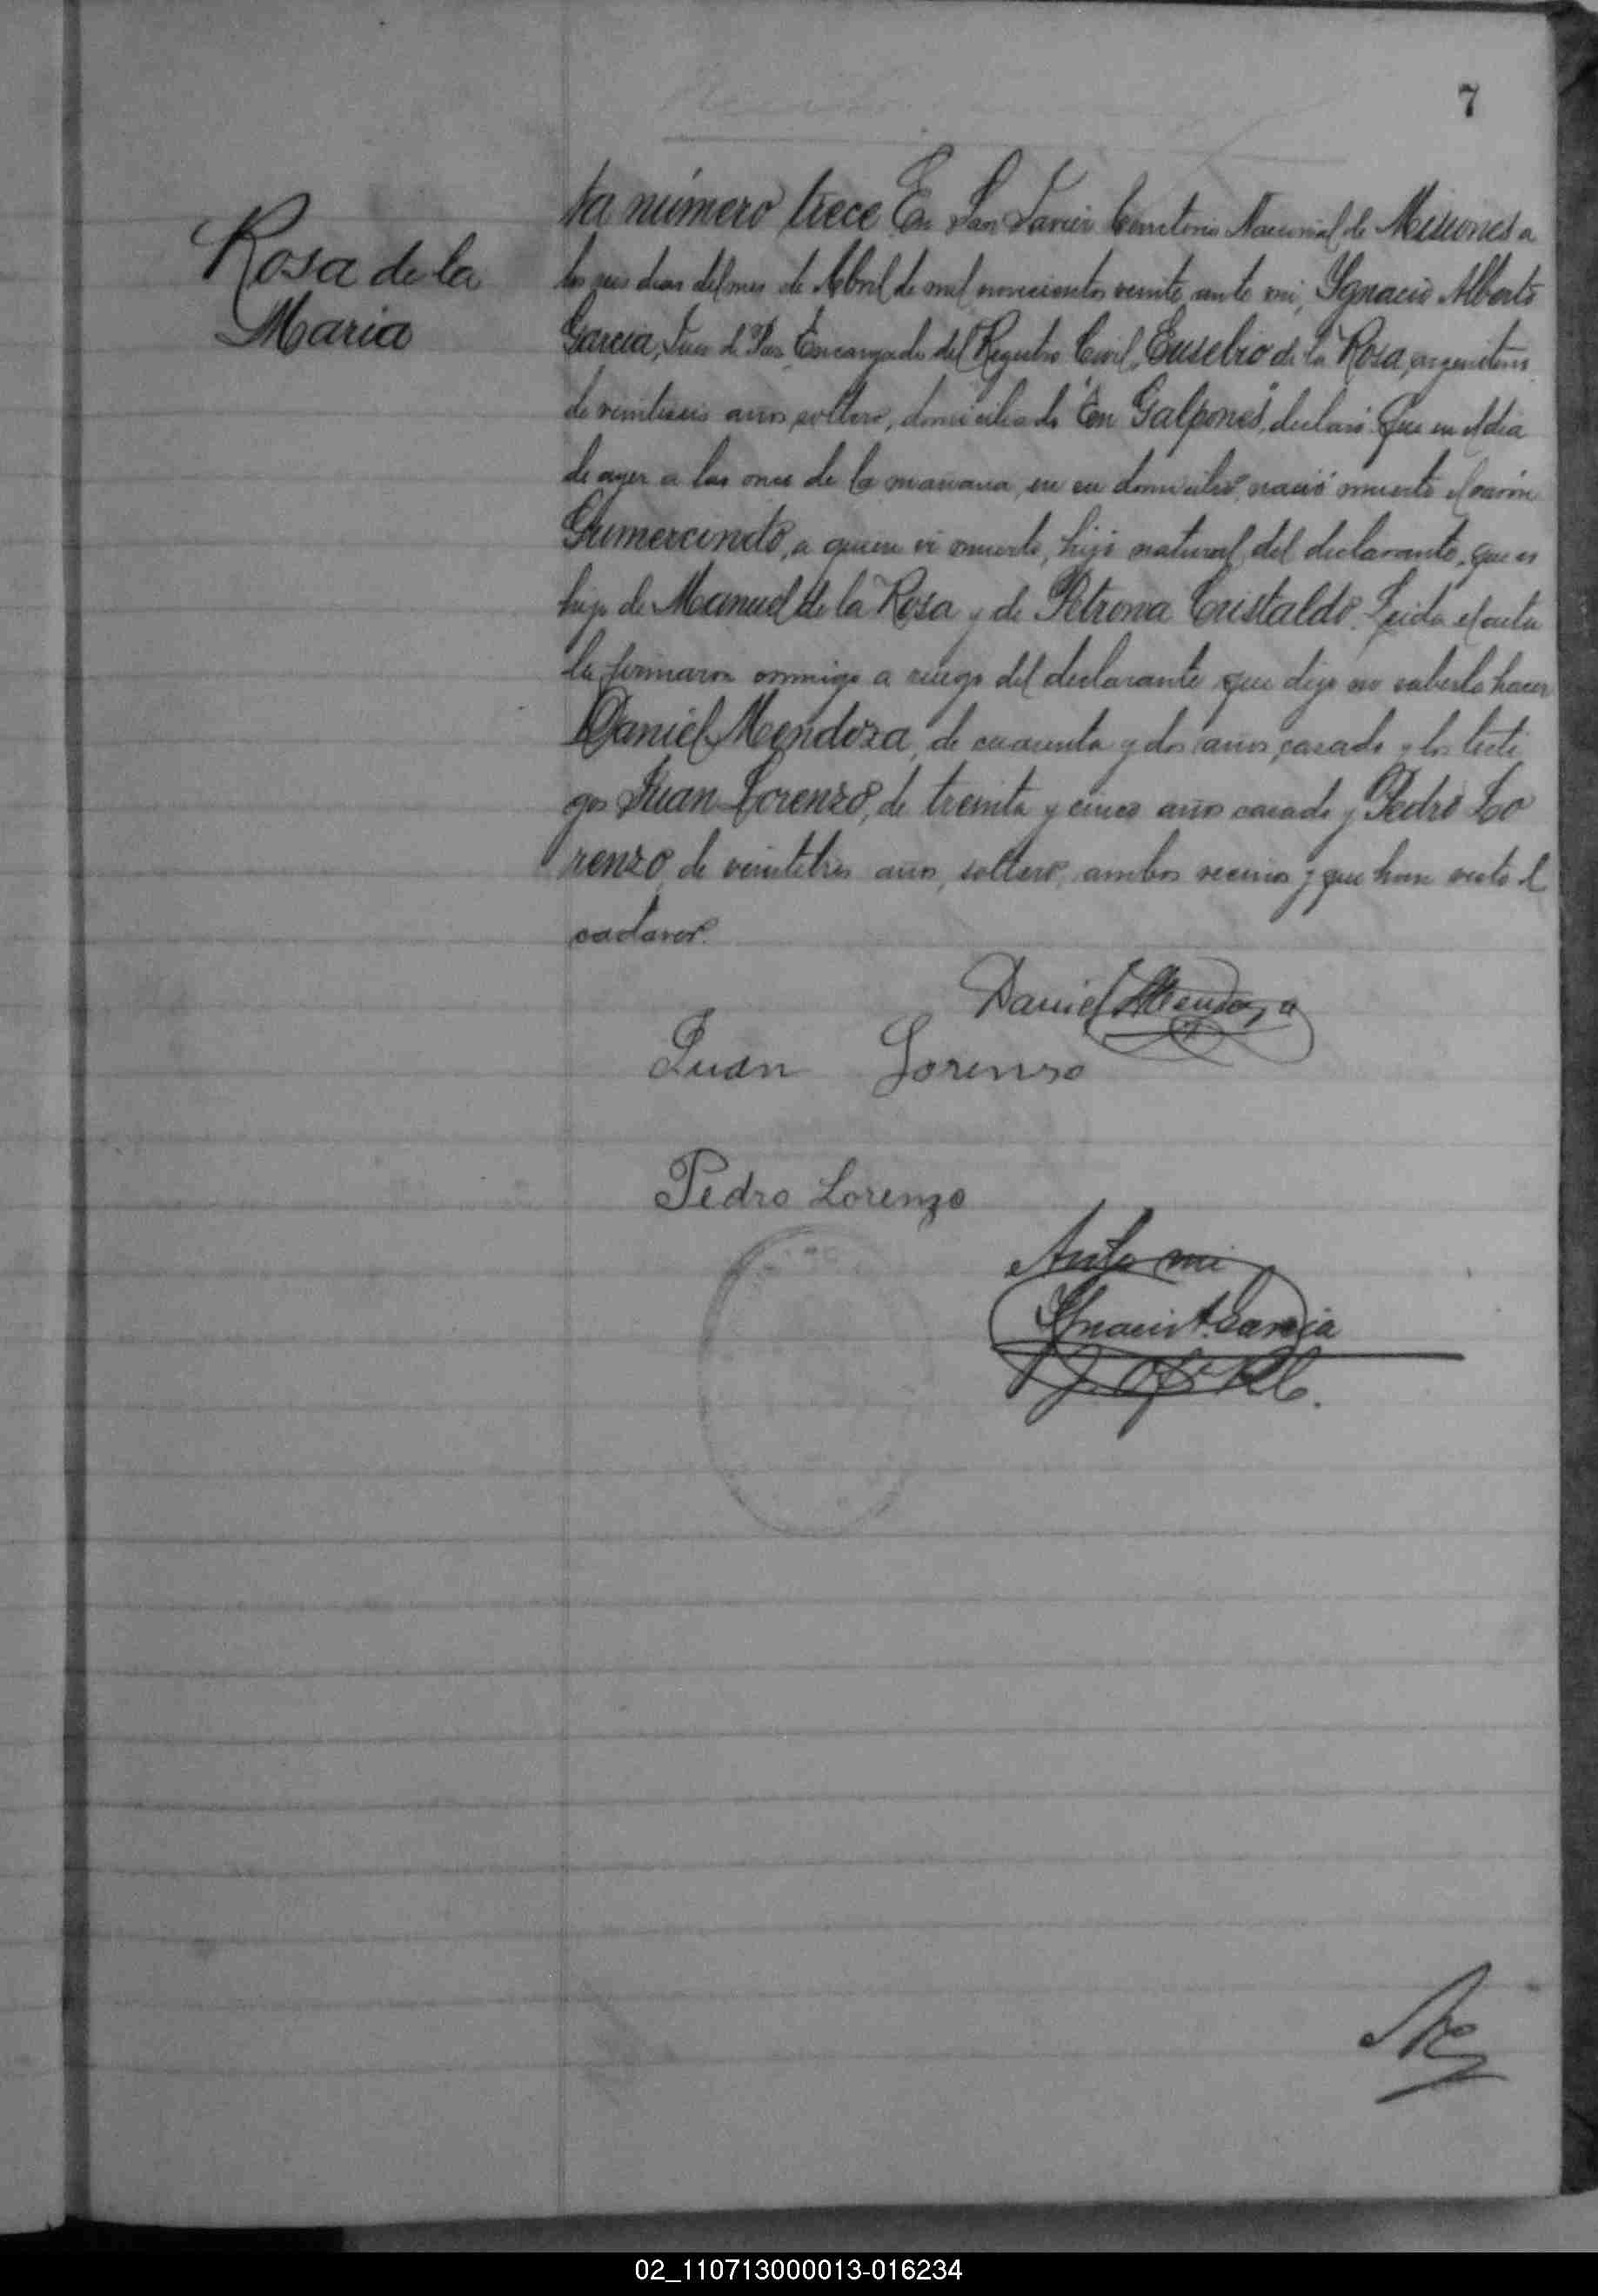 7
Rosa de la
Maria
ta número trece En San Javier Territorio Nacional de Misiones a
los seis dias del mes de Abril de mil novecientos veinte, ante mi, Ygnacio Alberto
Garcia, Juez de Paz Encargado del Registro Civil, Eusebio de la Rosa, argentino
de veintiseis años, soltero, domiciliado "En Galpones", declaró: Que en el día
de ayer a las once de la mañana, en su domicilio, nació muerto el varón
Gumercindo, a quien vi muerto, hijo natural del declarante, que es
hijo de Manuel de la Rosa y de Petrona Cristaldo. Leida el acta
la firmaron conmigo a ruego del declarante que dijo no saberlo hacer
Daniel Mendoza, de cuarenta y dos años, casado y los testi
gos Juan Lorenzo, de treinta y cinco años casado y Pedro Lo
renzo de veintitres años, soltero, ambos vecinos y que han visto el
cadaver.
Daniel Mendoza
Juan Lorenzo
Pedro Lorenzo
Ante mi
Ygnacio A. Garcia
02_110713000013-016234